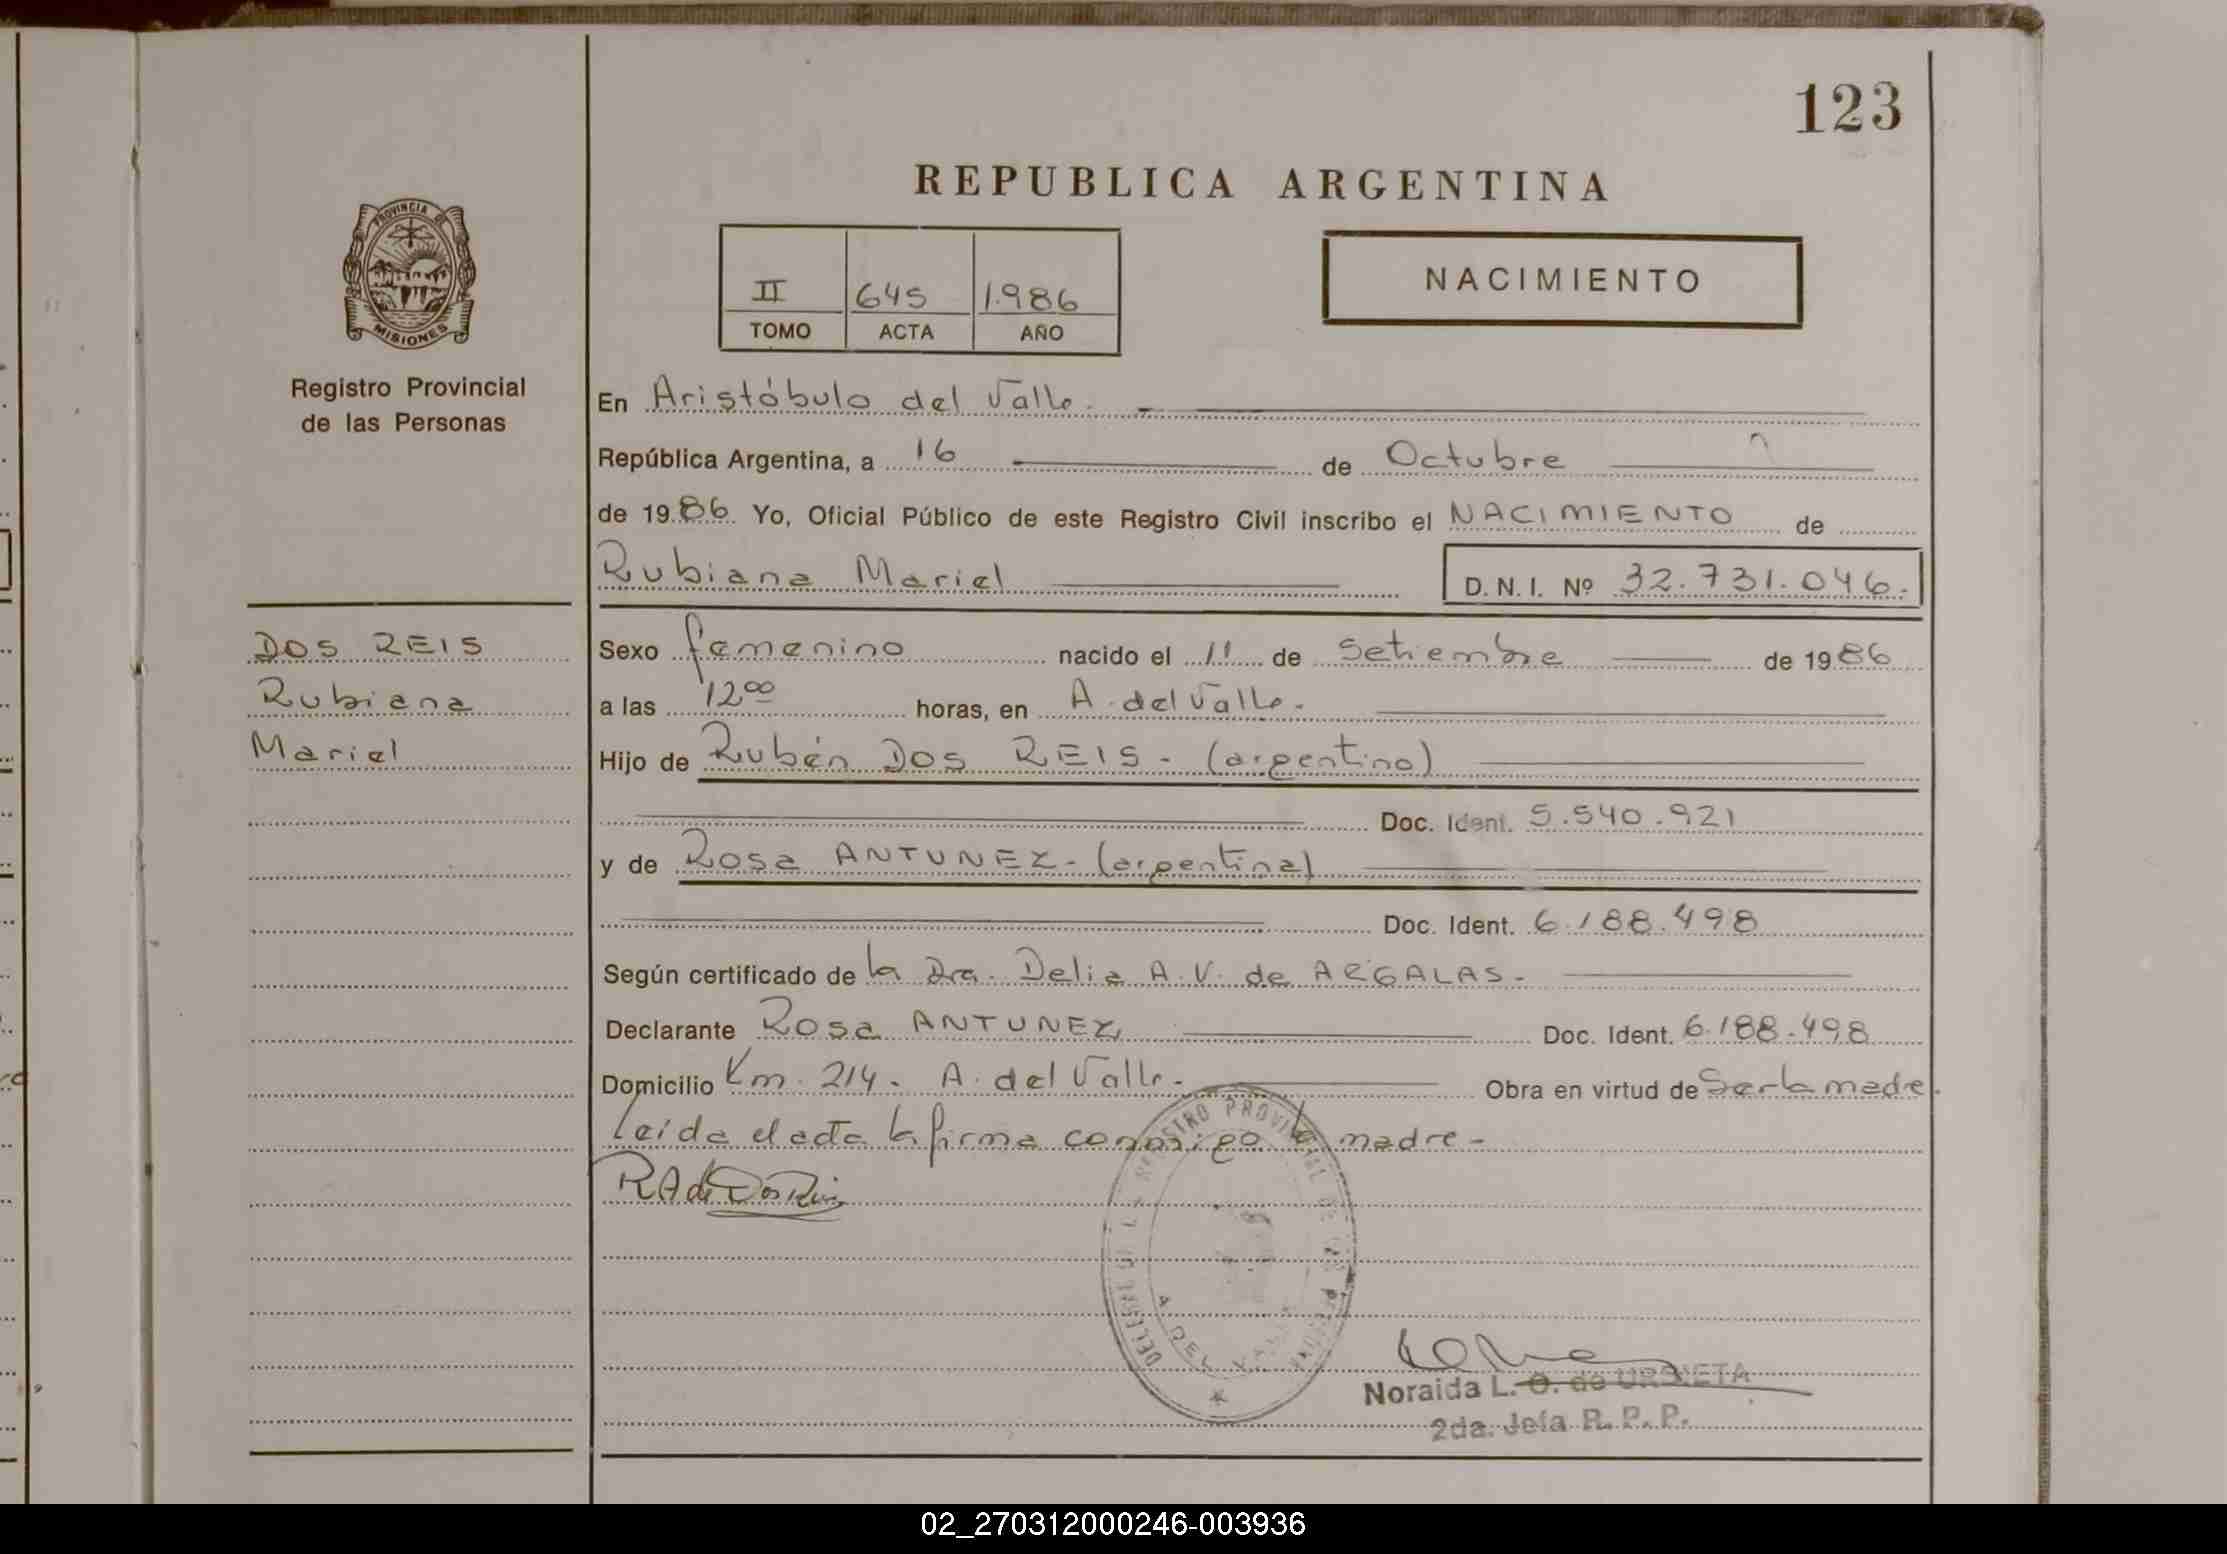 123
REPUBLICA ARGENTINA
PROVINCIA DE
MISIONES
Registro Provincial
de las Personas
II 645 1.986
TOMO ACTA AÑO
NACIMIENTO
En Aristóbulo del Valle.-
República Argentina, a 16 de Octubre
de 1986. Yo, Oficial Público de este Registro Civil inscribo el NACIMIENTO de
Rubiana Mariel D. N. I. Nº 32.731.046.
DOS REIS
Rubiana
Mariel
Sexo femenino nacido el 11 de Setiembre de 1986
a las 12⁰⁰ horas, en A. del Valle.
Hijo de Rubén DOS REIS - (argentino)
Doc. Ident. 5.540.921
y de Rosa ANTUNEZ - (argentina)
Doc. Ident. 6.188.498
Según certificado de la Dra. Delia A. V. de ARGALAS -
Declarante Rosa ANTUNEZ Doc. Ident. 6.188.498
Domicilio Km. 214. A. del Valle - Obra en virtud de Ser la madre.
Leída el acta la firma conmigo la madre -
RA de Dos Reis
REGISTRO PROVINCIAL DE LAS PERSONAS
A. DEL VALLE
Noraida L. O. de URBIETA
2da. Jefa R. P. P.
02_270312000246-003936